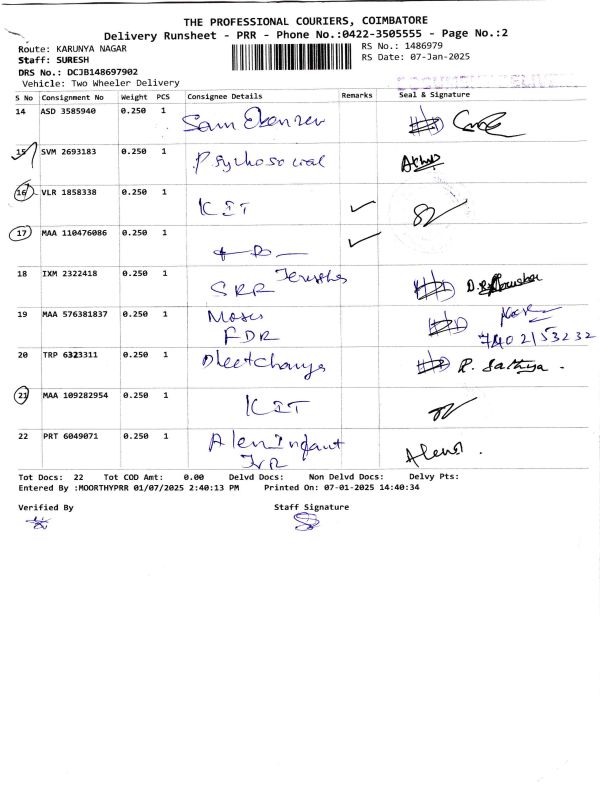 THE PROFESSIONAL COURIERS, COIMBATORE
Delivery Runsheet - PRR - Phone No.:0422-3505555 - Page No.:2
Route: KARUNYA NAGAR
RS No.: 1486979
Staff: SURESH
RS Date: 07-Jan-2025
DRS No.: DCJB148697902
Vehicle: Two Wheeler Delivery
S No Consignment No Weight PCS Consignee Details Remarks Seal & Signature
14 ASD 3585940 0.250 1 Sam Ebenzer
15 SVM 2693183 0.250 1 Psychosocial
16 VLR 1858338 0.250 1 KIT
17 MAA 110476086 0.250 1
18 IXM 2322418 0.250 1 Jerusha
SRR
19 MAA 576381837 0.250 1 Moses
FDR
7402153232
20 TRP 6323311 0.250 1 R. Sathya.
21 MAA 109282954 0.250 1 KIT
22 PRT 6049071 0.250 1 Alen Infant
Alens.
Tot Docs: 22 Tot COD Amt: 0.00 Delvd Docs: Non Delvd Docs: Delvy Pts:
Entered By :MOORTHYPRR 01/07/2025 2:40:13 PM Printed On: 07-01-2025 14:40:34
Verified By Staff Signature